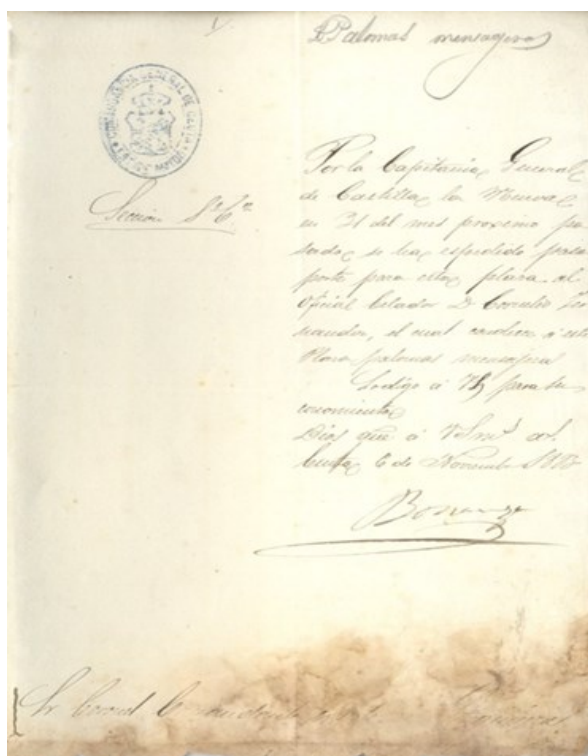 Palomas mensageras
COMANDANCIA GENERAL DE CEUTA
ESTADO MAYOR
Sección
Por la Capitania General
de Castilla la Nueva
en 31 del mes proximo pa
sado se ha espedido pasa
porte para esta plaza al
oficial Celador D.
el cual conduce á esta
Plaza palomas mensageras
Lo digo á para su
conocimiento
Dios gue. á
Ceuta 6 de Noviembre
Sr. Coronel Comandante